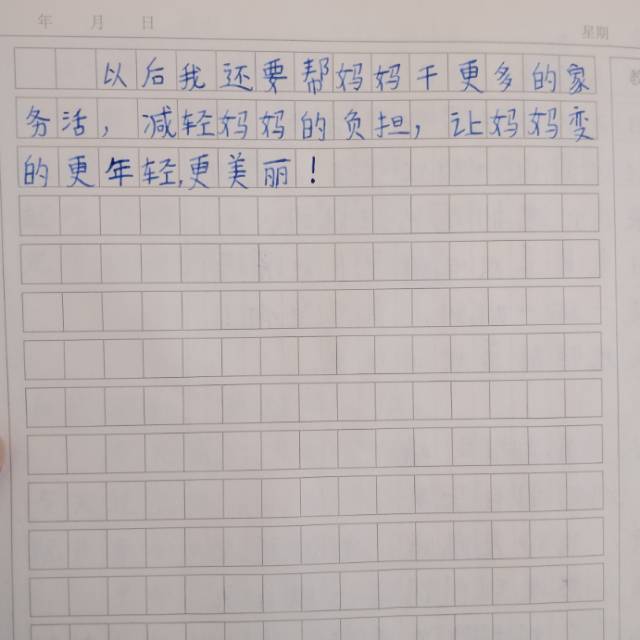 年 月 日
星期
以后我还要帮妈妈干更多的家
务活，减轻妈妈的负担，让妈妈变
的更年轻,更美丽！